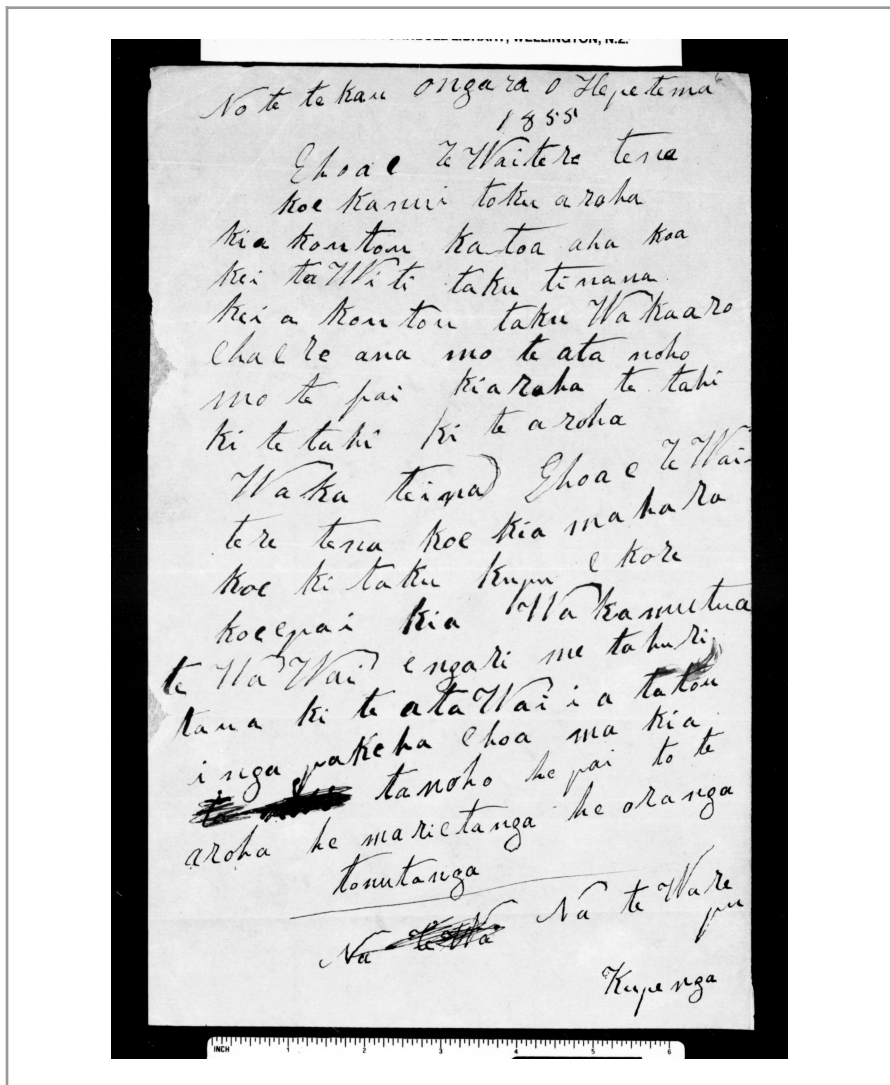 WELLINGTON, N.Z.
No te tekau ongara o Hepetema
1855
Ehoa e Te Waitere tena
koe kanui toku aroha
kia koutou katoa aha koa
kei ta Witi taku tinana
kei a koutou taku Wakaaro
ehaere ana mo te ata noho
mo te pai kiaroha te tahi
ki te tahi ki te aroha
Waka teina) Ehoa e Te Wai-
tere tena koe kia mahara
koe ki taku kupu e kore
koeepai kia Wakamutua
te WaWai engari me tahuri
taua ki te ata Wai i a tatou
i nga pakeha Ehoa ma kia
tanoho he pai to te
aroha he marietanga he oranga
tonutanga
Na Na te Ware
pu
Kupenga
INCH 1 2 3 4 5 6